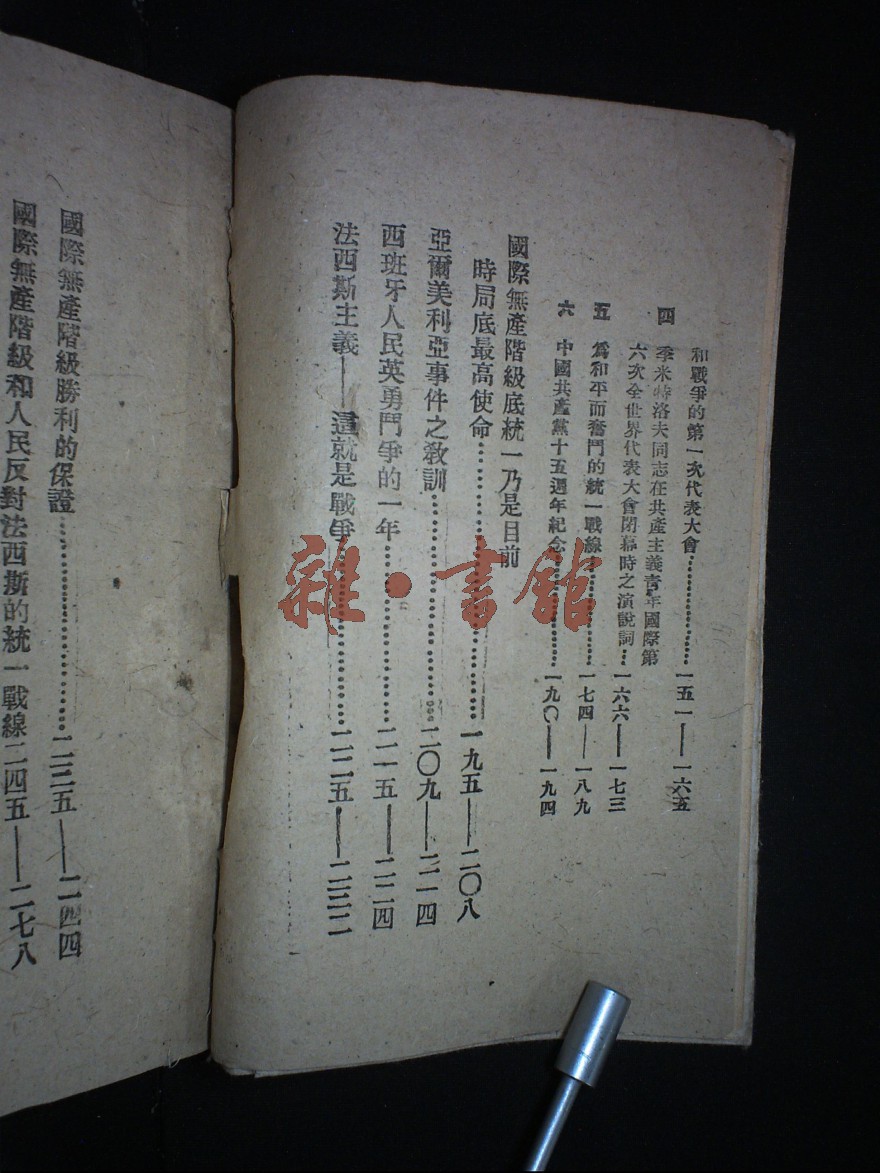 和戰爭的第一次代表大會…………一五一——一六五
四　季米特洛夫同志在共產主義青年國際第
六次全世界代表大會閉幕時之演說詞…一六六——一七三
五　爲和平而奮鬥的統一戰線…………一七四——一八九
六　中國共產黨十五週年紀念…………一九〇——一九四
國際無產階級底統一乃是目前
時局底最高使命…………一九五——二〇八
亞爾美利亞事件之敎訓…………二〇九——二一四
西班牙人民英勇鬥爭的一年…………二一五——二二四
法西斯主義——這就是戰爭…………二二五——二三二
國際無產階級勝利的保證…………二三五——二四四
國際無產階級和人民反對法西斯的統一戰線二四五——二七八
雜·書館